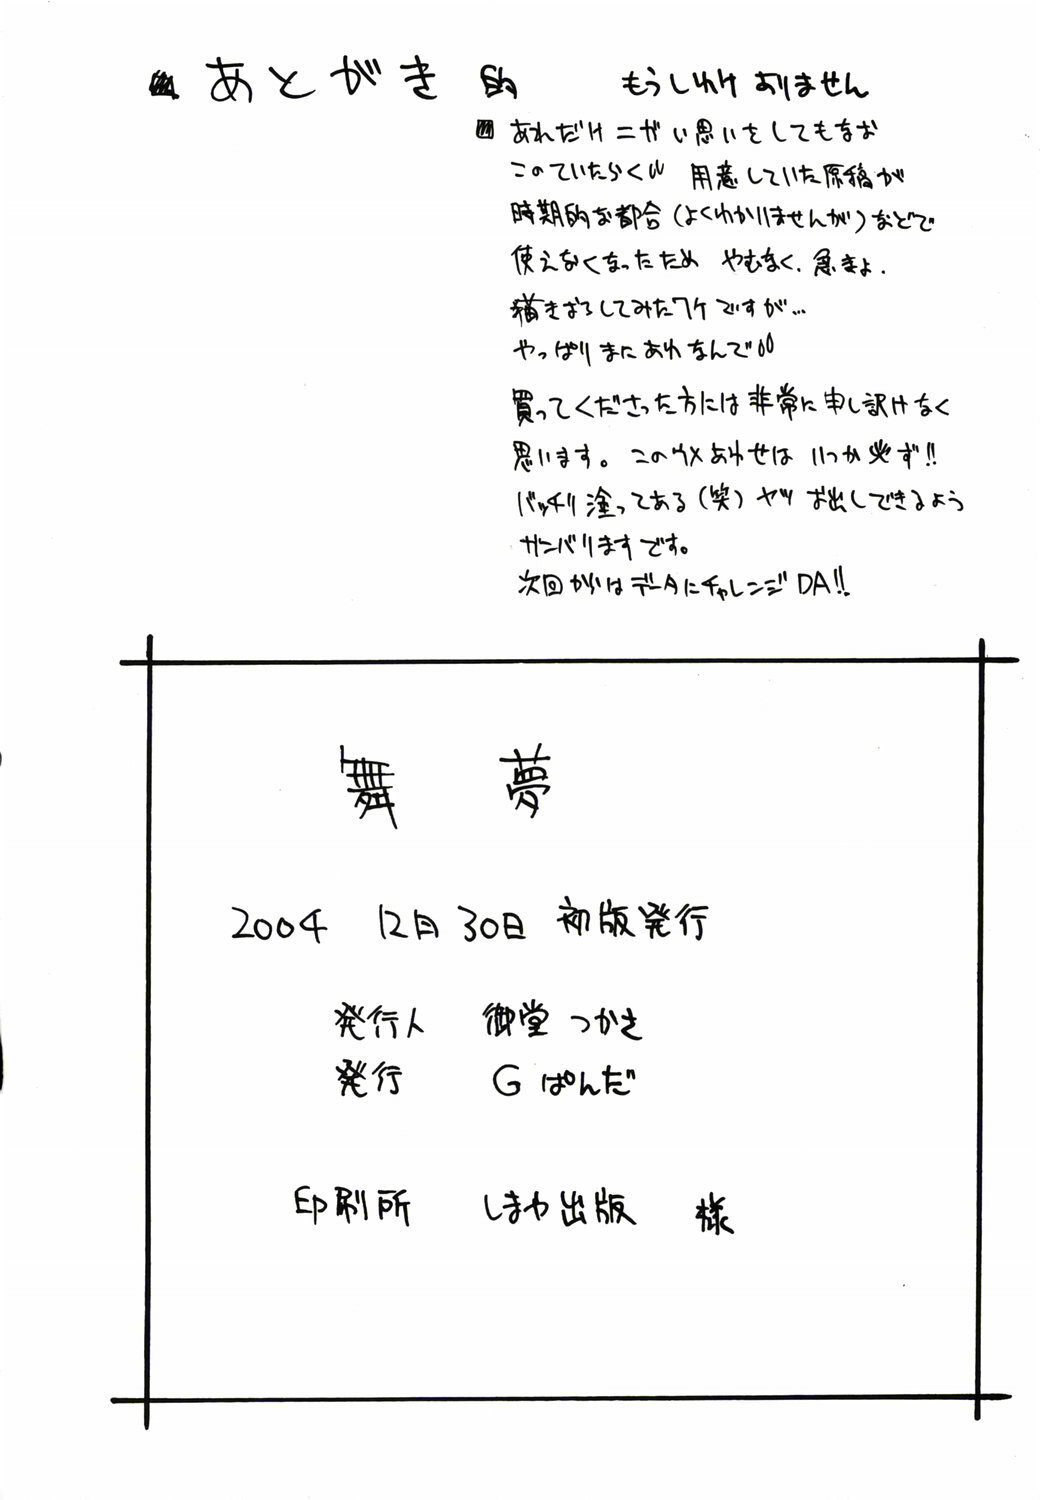 あとがき的 もうしわけありません
あれだけニガい思いをしてもなお
このていたらく 用意していた原稿が
時期的な都合(よくわかりませんが)などで
使えなくなったため やむなく、急きょ、
描きおろしてみたワケですが…
やっぱりまにあわなんで
買ってくださった方には非常に申し訳けなく
思います。このウメあわせはいつか必ず!!
バッチリ塗ってある(笑)ヤツお出しできるよう
ガンバりますです。
次回からはデータにチャレンジDA!!
舞 夢
2004 12月30日 初版発行
発行人 御堂つかさ
発行 Gぱんだ
印刷所 しまや出版 様